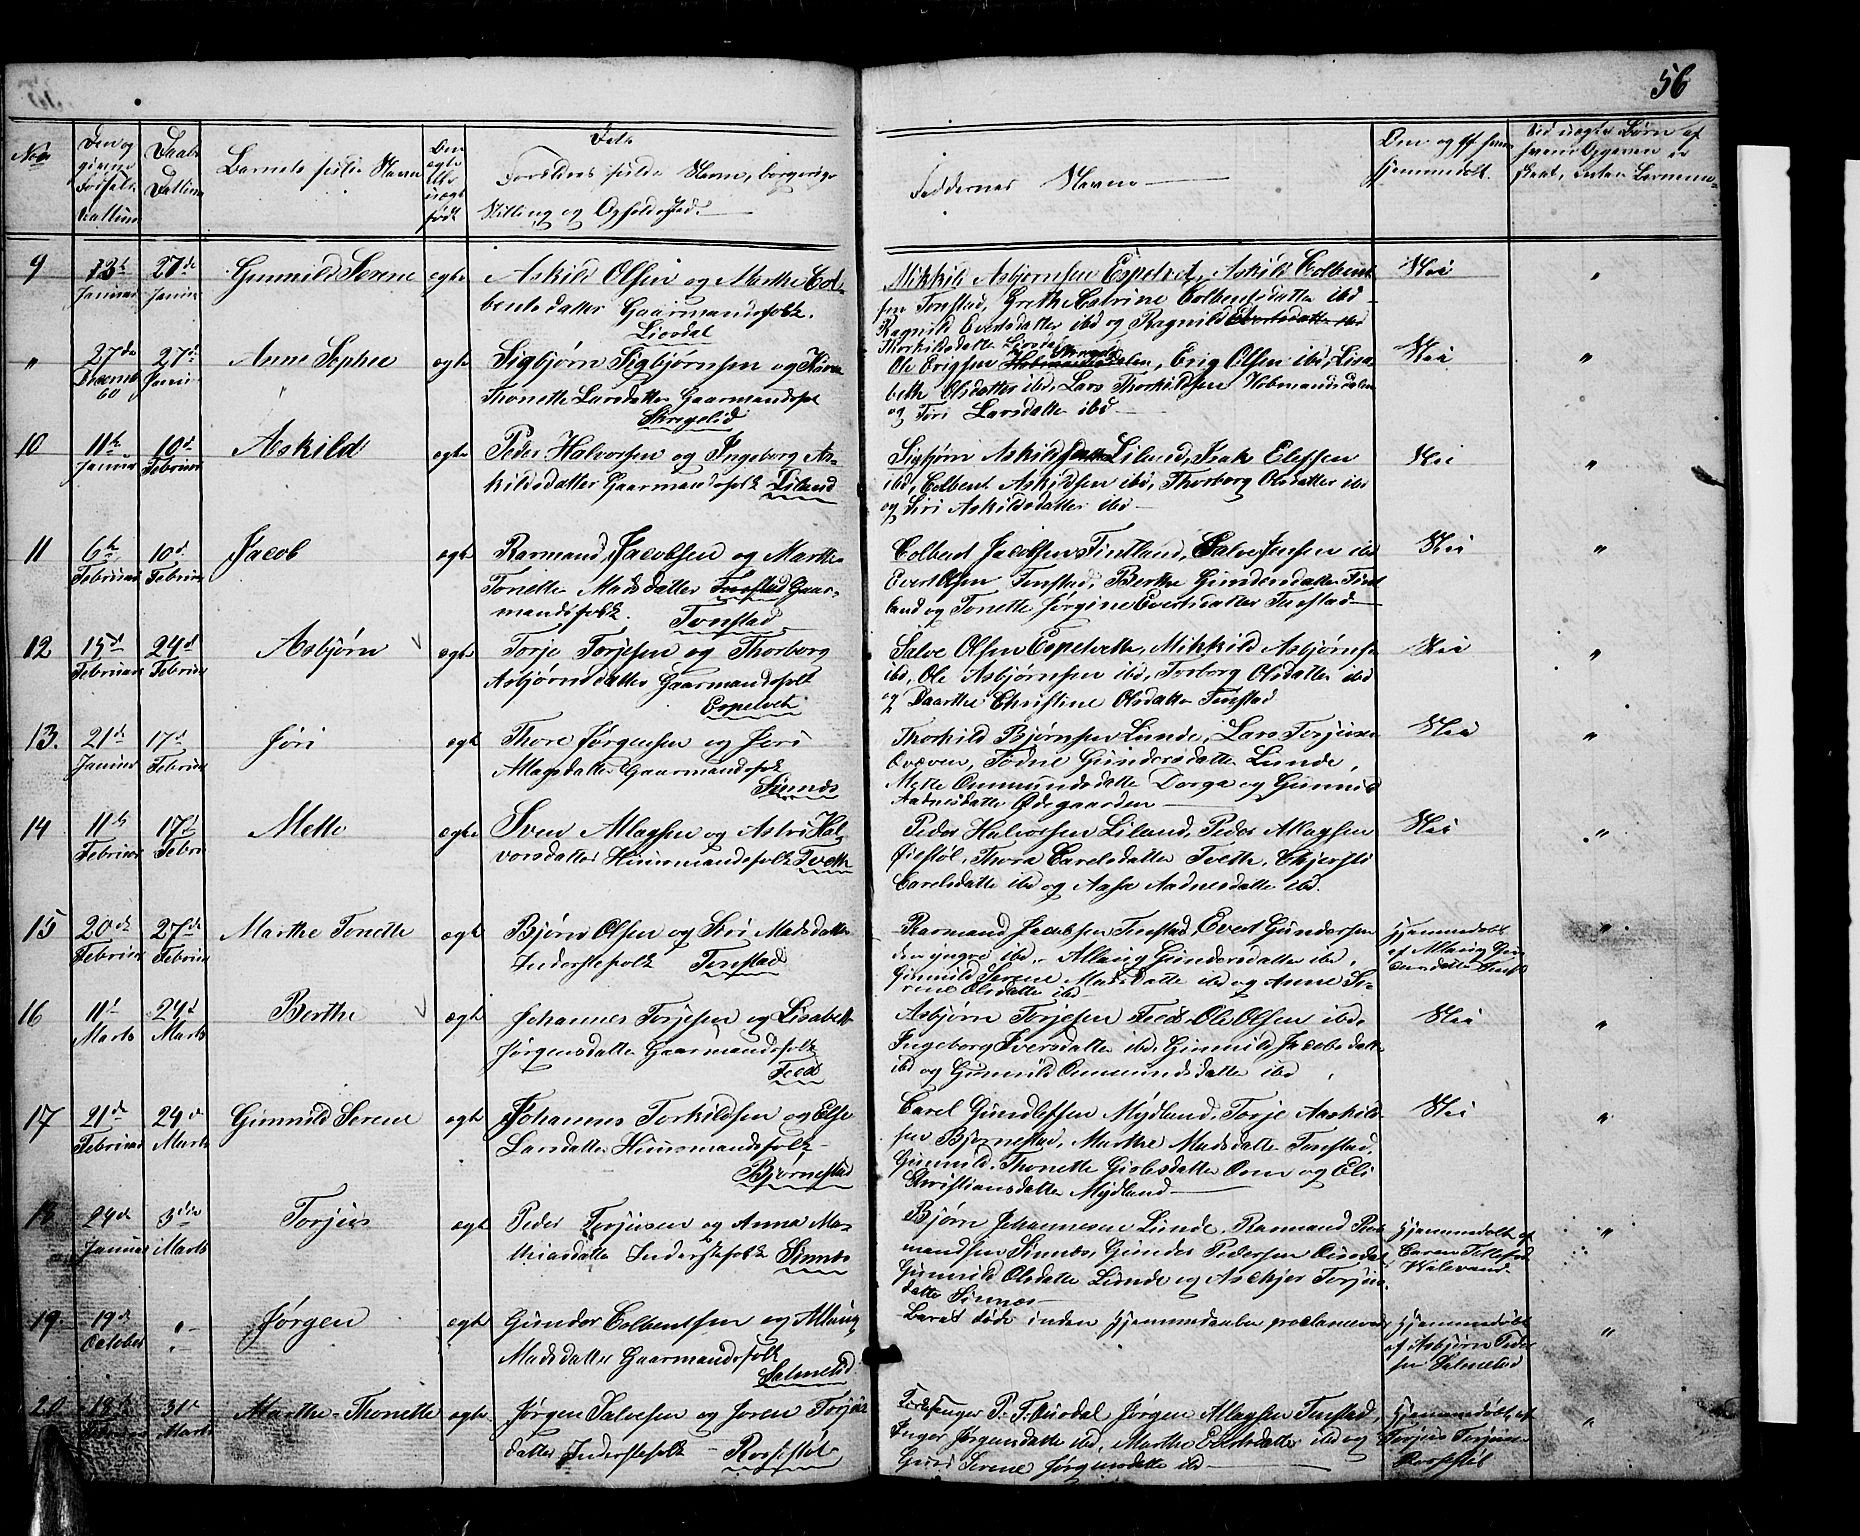 56
No
Barnets fulde Navn
Daabs
Forældres fulde Navn, borgerige
Stilling og Opholdssted.
Faddernes Navne
hjemmedøbt.
9 13de Januar 27de Januar Gunnild Serene ægte Askild Olsen og Marthe Col-
bentsdatter Gaarmandsfolk.
Liosdal
Mikkild Asbjørnsen Espetvet, Askild Colbent-
sen Tonstad, Grethe Catrine Colbentsdatter ibd
Ragnild Evertsdatter ibd og Ragnild
Thorkildsdatter Liosdal
Nei "
" 27de 60 27de Anne Sophie ægte Sigbjørn Sigbjørnsen og
Thonette Larsdatter Gaarmandsfol
Skregelid
Ole Erigsen, Erig Olsen ibd, Lisa-
beth Olsdatter ibd, Lars Thorkildsen Hobmandsdalen
og Tøri Larsdatter ibd
Nei "
10 11te Januar 10de Februar Askild ægte Peder Halvorsen og Ingeborg As-
kildsdatter Gaarmandsfolk Liland
Sigbjørn Askildsen Liland, Isak Elefsen
ibd, Colbent Askildsen ibd, Thorborg Olsdatter ibd
og Siri Askildsdatter ibd
Nei "
11 6te Februar 10de Februar Jacob ægte Rasmand Jacobsen og Marthe
Tonette Madsdatter Tonstad Gaar-
mandsfolk. Tonstad
Colbent Jacobsen Fintland, Salve Jensen ibd
Evert Olsen Tonstad, Berthe Gundersdatter Fint
land og Tonette Jørgine Evertsdatter Tonstad
Nei "
12 15de Februar 24de Februar Asbjørn ægte Torje Torjesen og Thorborg
Asbjørnsdatter Gaarmandsfolk
Espetvet
Salve Olsen Espetveth, Mikkild Asbjørnsen
ibd, Ole Asbjørnsen ibd, Torborg Olsdatter ibd
og Daarthe Christine Olsdatter Tonstad
Nei "
13. 21de Januar 17de Februar Jøri ægte Thore Jørgensen og Jøri
Allagsdatter Gaarmandsfolk
Sinnes
Thorkild Bjørnsen Lunde, Lars Torjusen
Qvæven, Tødne Gundersdatter Lunde,
Mette Ommundsdatter Dorga og Gunnild
Aadnesdatter Ødegaarden
Nei "
14 11te Februar 17de Febru Mette ægte Sven Allagsen og Astri Hal-
vorsdatter Huusmandsfolk Tveth
Peder Halvorsen Liland, Peder Allagsen
Øiestøl, Thora Carelsdatter Tveth, Chjersti
Carelsdatte ibd og Aasa Aadnesdatte ibd.
Nei "
15 20de Februar 27de Februar Marthe Tonette ægte Bjørn Olsen og Siri Madsdatter
Inderstefolk Tonstad
Rasmand Jacobsen Tonstad, Evert Gundersen
den yngre ibd, Allaug Gundersdatter ibd,
Gunnild Serene Madsdatte ibd og Anne Si-
rene Olsdatte ibd
hjemmedøbt
af Allaug Gun
dersdatte Tonst
"
16 11te Marts 24de Marts Berthe ægte Johannes Torjesen og Lisabeth
Jørgensdatter Gaarmandsfolk
Feed
Asbjørn Torjesen Feed, Ole Olsen ibd,
Ingeborg Iversdatter ibd, Gunnild Jacobsdatte
ibd og Gunnild Ommundsdatte ibd
Nei "
17 21de Februar 24de Marts Gunnild Serene ægte Johannes Torkildsen og Else
Larsdatter Huusmandsfolk
Bjørnestad
Carel Gundlefsen Mydland, Torje Aaskild-
sen Bjørnestad, Marthe Madsdatte Tonstad,
Gunnild Thonette Gislesdatter Oom og Eli
Christiansdatter Mydland
Nei "
18 24de Januar 3die Marts Torjus ægte Peder Torjusen og Anna Ma-
thiasdatte Inderstefolk Sinnes
Bjørn Johannesen Lunde, Rasmand Ras-
mandsen Sinnes, Gunder Pedersen Ousdal
Gunnild Olsdatte Lunde og Aschjer Torjus
datte Sinnes
hjemmedøbt af
Caren Tollefsd
Walevand
"
19. 19de October " Jørgen ægte Gunder Colbentsen og Allaug
Madsdatter Gaarmandsfolk
Salmelid
Barnet døde inden hjemmedaaben proclameredes
hjemmedøbt
af Asbjørn Peder
sen Salmelid
"
20 18de Februar 31te Marts Marthe Thonette ægte Jørgen Salvesen og Joren Torjus
datter Inderstefolk Rosfestøl
Forsanger P. T. Ousdal, Jørgen Allagsen Tonstad,
Inger Jørgensdatte ibd, Marthe Evertsdatter ibd og
Guri Serene Jørgensdatte ibd
hjemmedøbt af
Torjus Torjusen
Rosfestøl
"